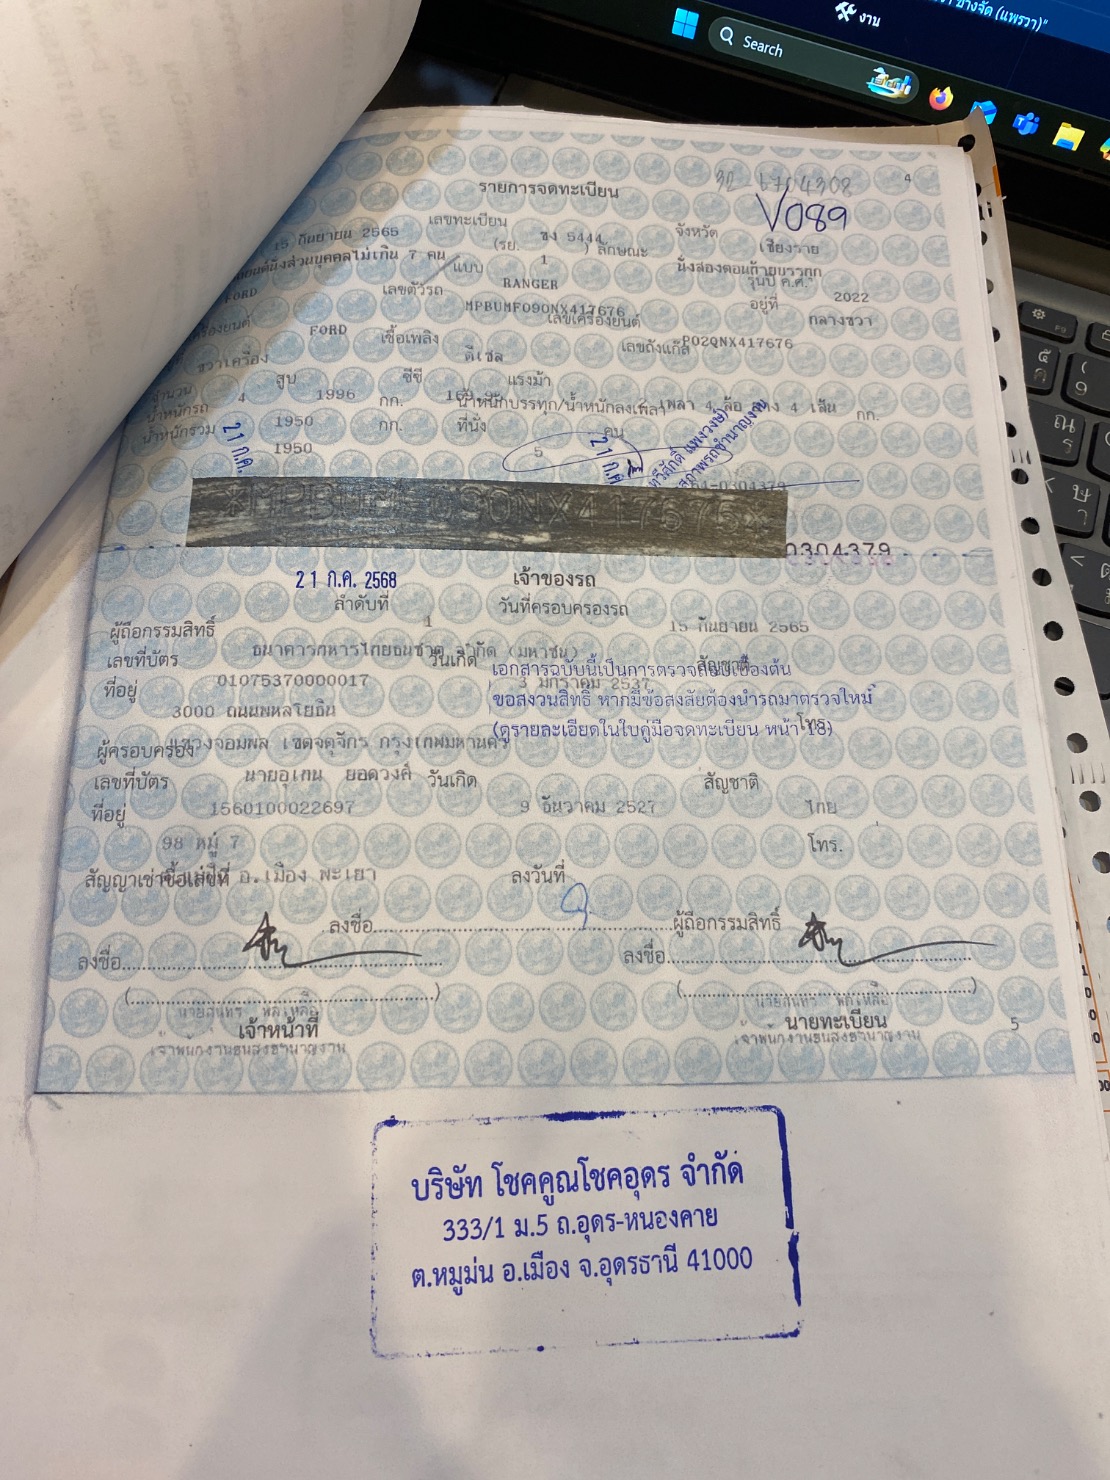 ปางจัด (แพรวา)"
งาน
Search
32-6704308
4
รายการจดทะเบียน
V089
15 กันยายน 2565
เลขทะเบียน
ขง 5444
จังหวัด
เชียงราย
(รย. 1 ) ลักษณะ
นั่งสองตอนท้ายบรรทุก
รถยนต์นั่งส่วนบุคคลไม่เกิน 7 คน
แบบ
RANGER
รุ่นปี ค.ศ.
2022
FORD
เลขตัวรถ
MPBUMF090NX417676
อยู่ที่
กลางขวา
เครื่องยนต์
FORD
เลขเครื่องยนต์
P02QNX417676
เชื้อเพลิง
ดีเซล
เลขถังแก๊ส
ขวาเครื่อง
จำนวน
4
สูบ
1996
ซีซี
แรงม้า
2 เพลา 4 ล้อ ยาง 4 เส้น
น้ำหนักรถ
1950
กก.
น้ำหนักบรรทุก/น้ำหนักลงเพลา
กก.
น้ำหนักรวม
1950
กก.
ที่นั่ง
5
คน
21 ก.ค.
21 ก.ค.
64-0304379
*MPBUM 090NX417676*
0304379
21 ก.ค. 2568
เจ้าของรถ
ลำดับที่
1
วันที่ครอบครองรถ
15 กันยายน 2565
ผู้ถือกรรมสิทธิ์
ธนาคารทหารไทยธนชาต จำกัด (มหาชน)
เลขที่บัตร
01075370000017
วันเกิด
3 มกราคม 2537
สัญชาติ
เอกสารฉบับนี้เป็นการตรวจสอบเบื้องต้น
ขอสงวนสิทธิ์ หากมีข้อสงสัยต้องนำรถมาตรวจใหม่
(ดูรายละเอียดในใบคู่มือจดทะเบียน หน้า 18)
ที่อยู่
3000 ถนนพหลโยธิน
โทร.
แขวงจอมพล เขตจตุจักร กรุงเทพมหานคร
ผู้ครอบครอง
นายอุเทน ยอดวงศ์
เลขที่บัตร
1560100022697
วันเกิด
9 ธันวาคม 2527
สัญชาติ
ไทย
ที่อยู่
98 หมู่ 7
โทร.
อ.เมือง พะเยา
สัญญาเช่าซื้อเลขที่
ลงวันที่
ลงชื่อ
ผู้ถือกรรมสิทธิ์
ลงชื่อ
ลงชื่อ
เจ้าหน้าที่
เจ้าพนักงานขนส่งชำนาญงาน
นายทะเบียน
เจ้าพนักงานขนส่งชำนาญงาน
5
บริษัท โชคคูณโชคอุดร จำกัด
333/1 ม.5 ถ.อุดร-หนองคาย
ต.หมูม่น อ.เมือง จ.อุดรธานี 41000